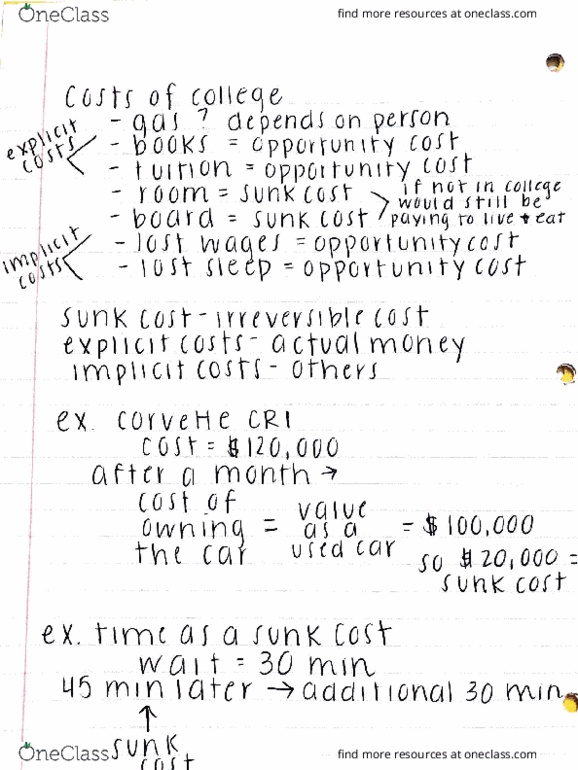 OneClass
find more resources at oneclass.com
costs of college
- gas ? depends on person
explicit costs
- books = opportunity cost
- tuition = opportunity cost
- room = sunk cost
- board = sunk cost
if not in college
would still be
paying to live + eat
implicit costs
- lost wages = opportunity cost
- lost sleep = opportunity cost
sunk cost - irreversible cost
explicit costs - actual money
implicit costs - others
ex. corvette CR1
cost = $120,000
after a month →
cost of owning the car = value as a used car = $100,000
so $20,000 =
sunk cost
ex. time as a sunk cost
wait = 30 min
45 min later → additional 30 min
↑
sunk
cost
OneClass
find more resources at oneclass.com